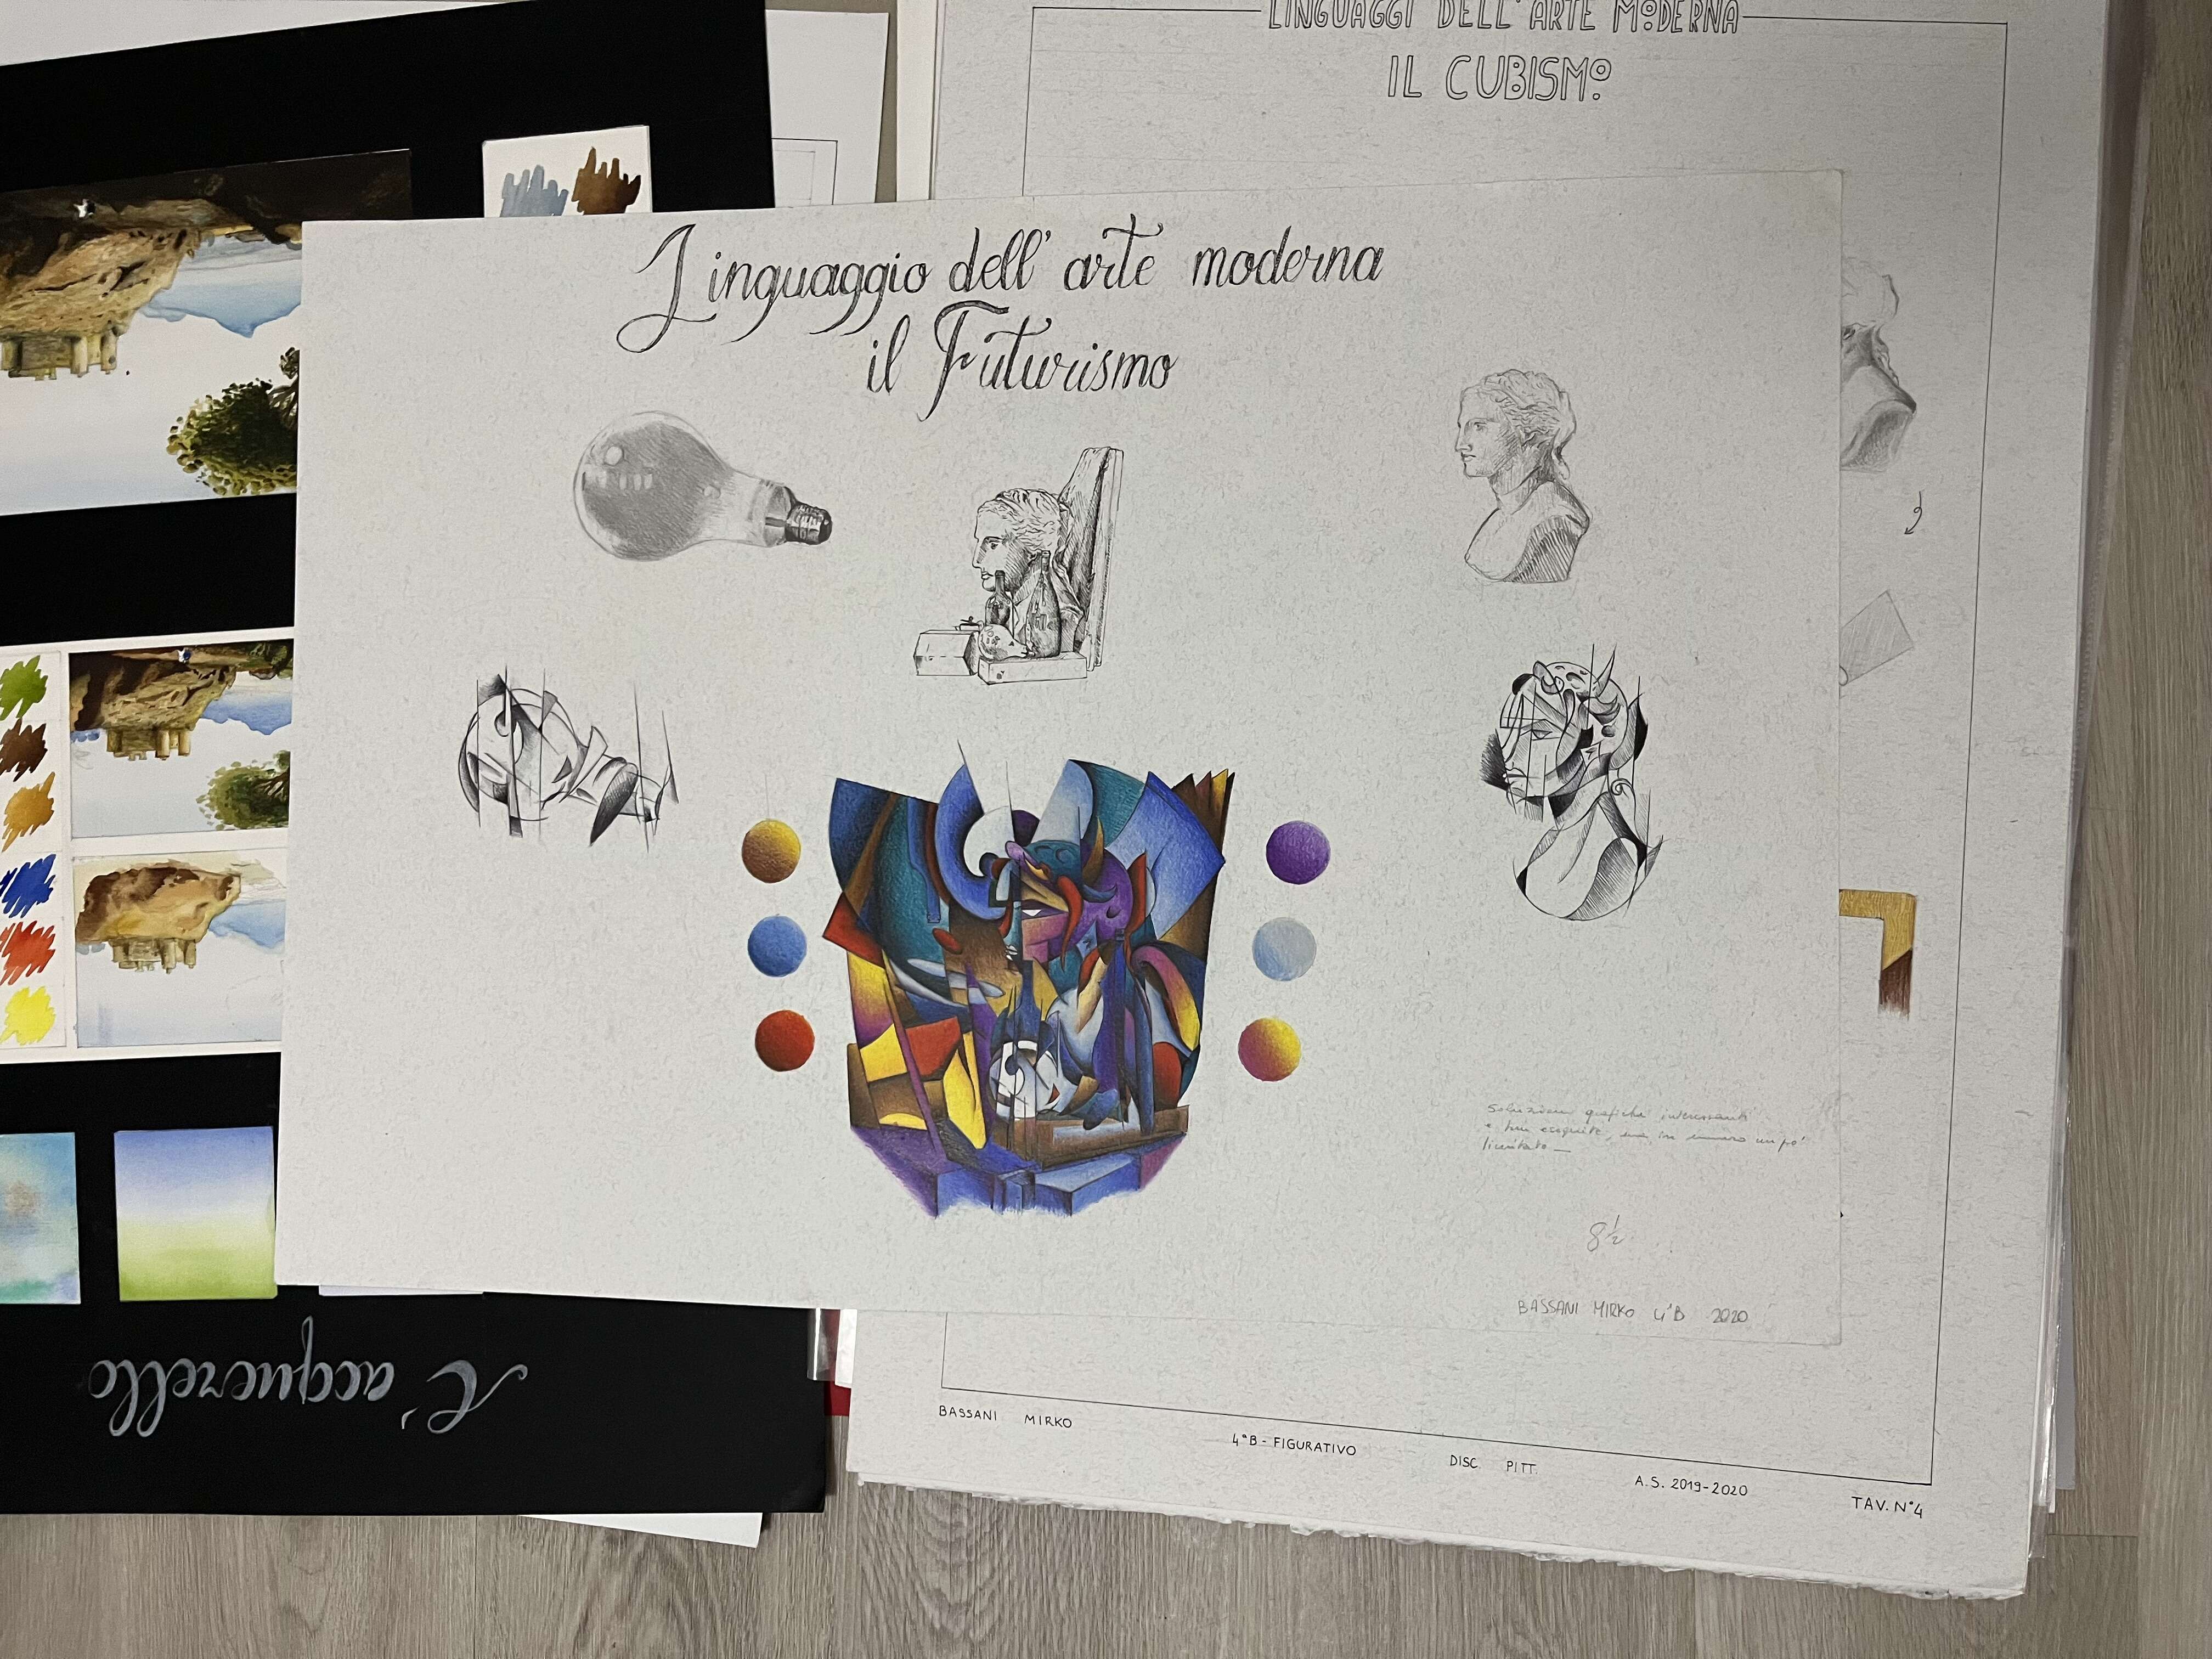 L'acquerello
Linguaggio dell'arte moderna
il Futurismo
Soluzioni grafiche interessanti
e ben eseguite, ma in numero un po'
limitato _
8½
BASSANI MIRKO 4°B 2020
LINGUAGGI DELL'ARTE MODERNA
IL CUBISMO
BASSANI MIRKO
4°B - FIGURATIVO
DISC. PITT.
A.S. 2019-2020
TAV. N°4